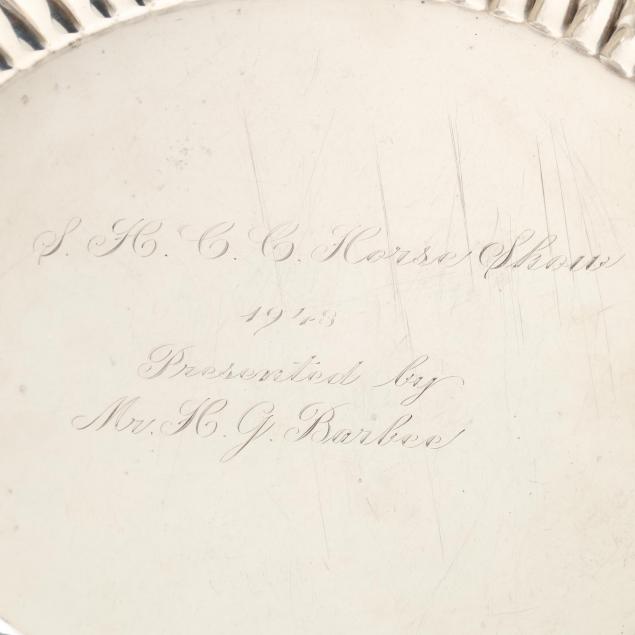 S. H. C. C. Horse Show
1948
Presented by
Mr. H. G. Barbee